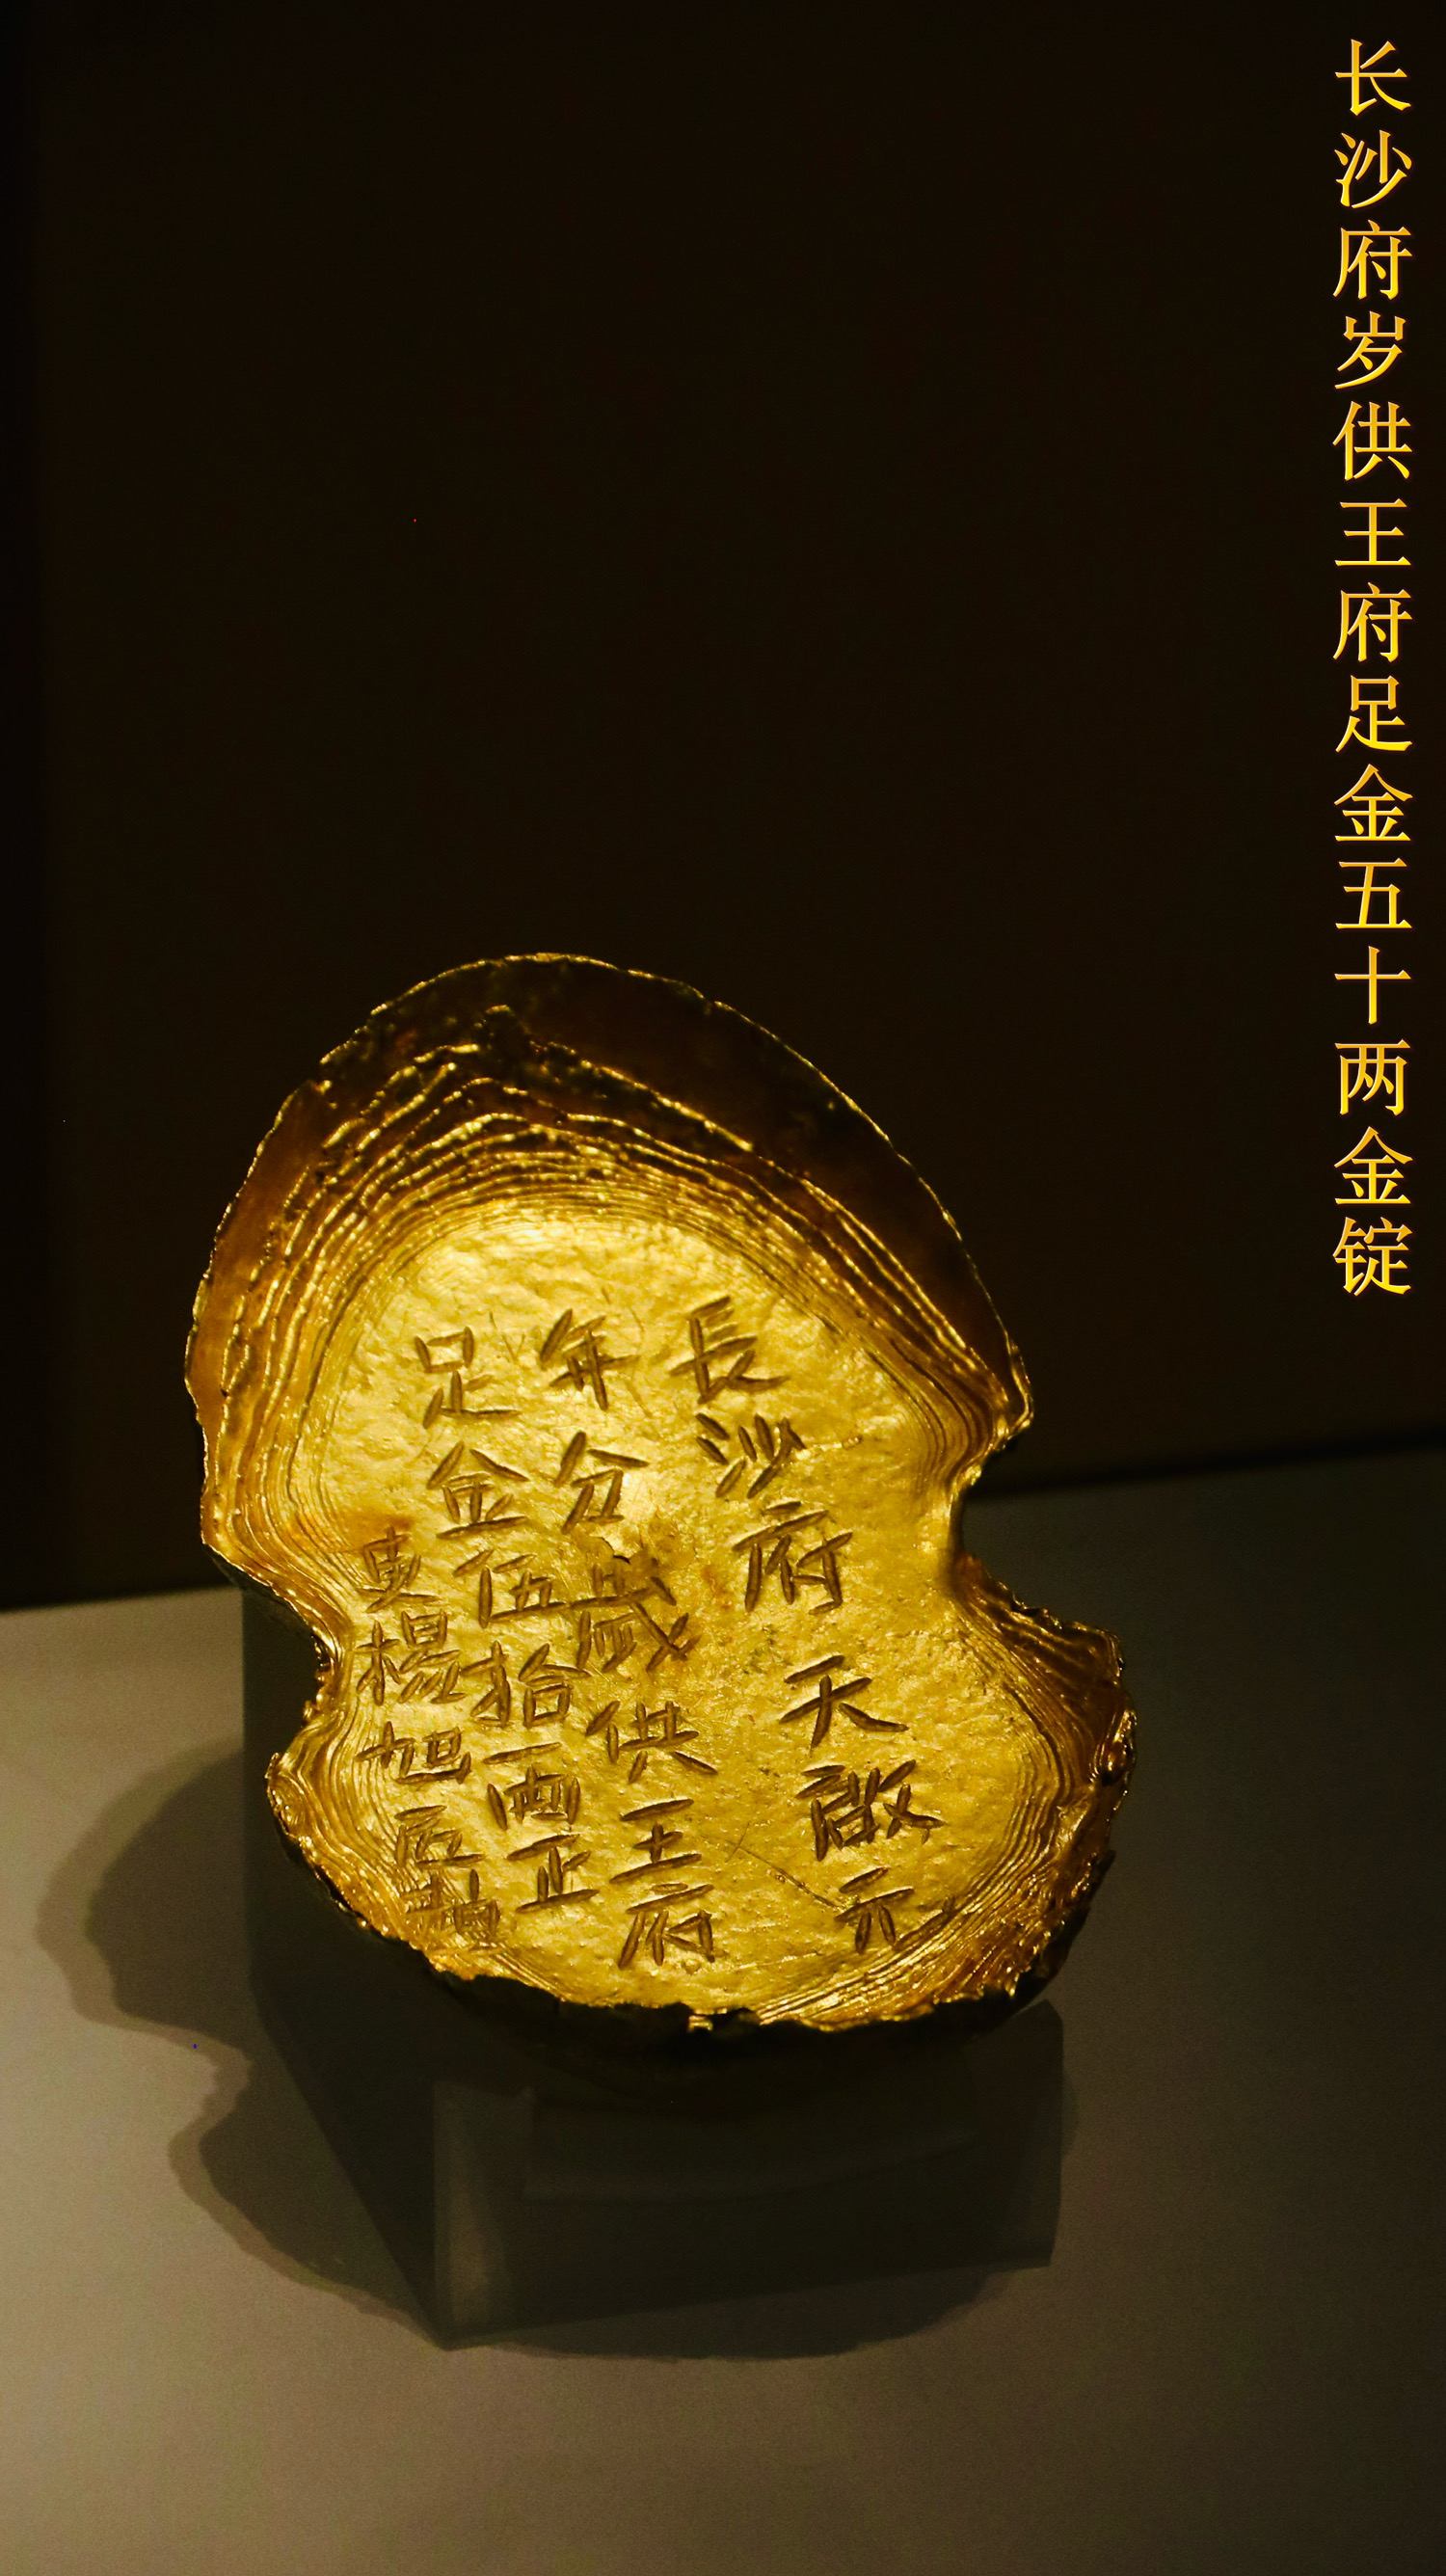 长沙府岁供王府足金五十两金锭
長沙府 天啟元
年分歲供王府
足金伍拾兩正
吏楊旭匠